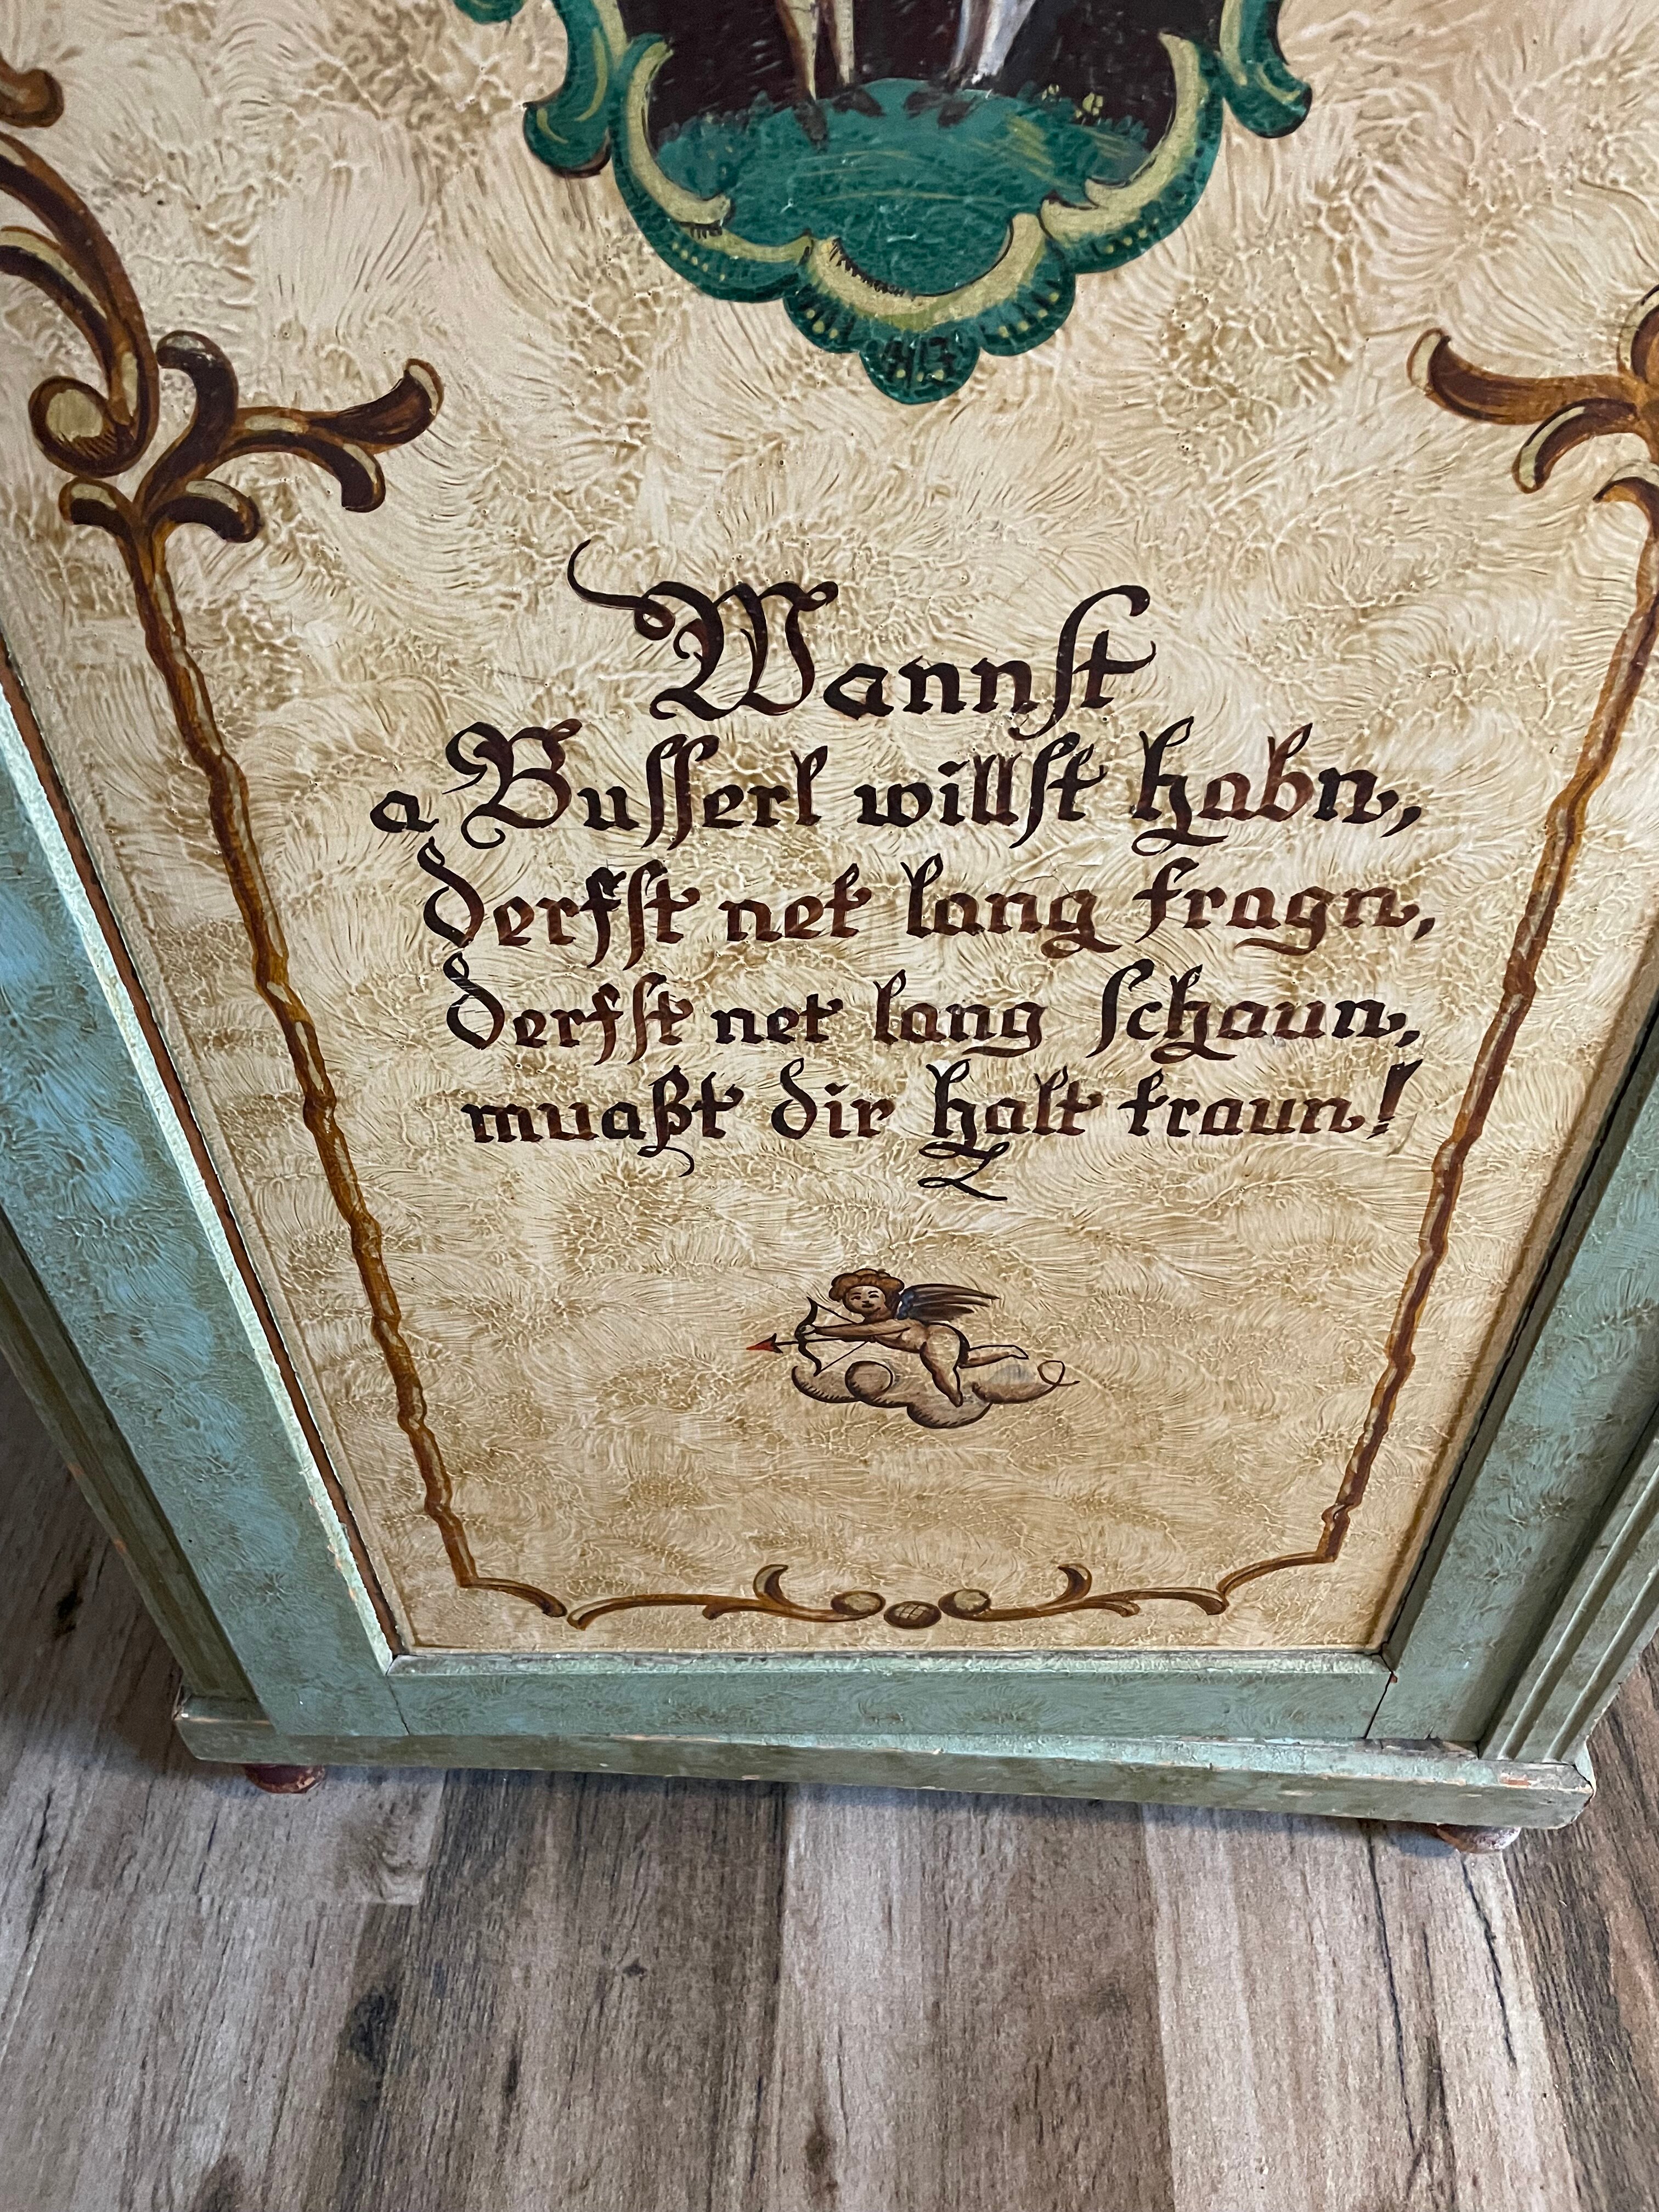 Wannst
a Busserl willst habn,
derfst net lang fragn,
derfst net lang schaun,
muaßt dir halt traun!